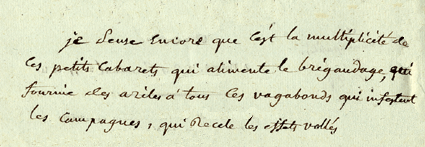 je pense encore que c'est la multiplicité de
ces petits cabarets qui alimente le brigandage, qui
fournie des aziles à tous ces vagabonds qui infestent
les campagnes, qui recele les effets vollés